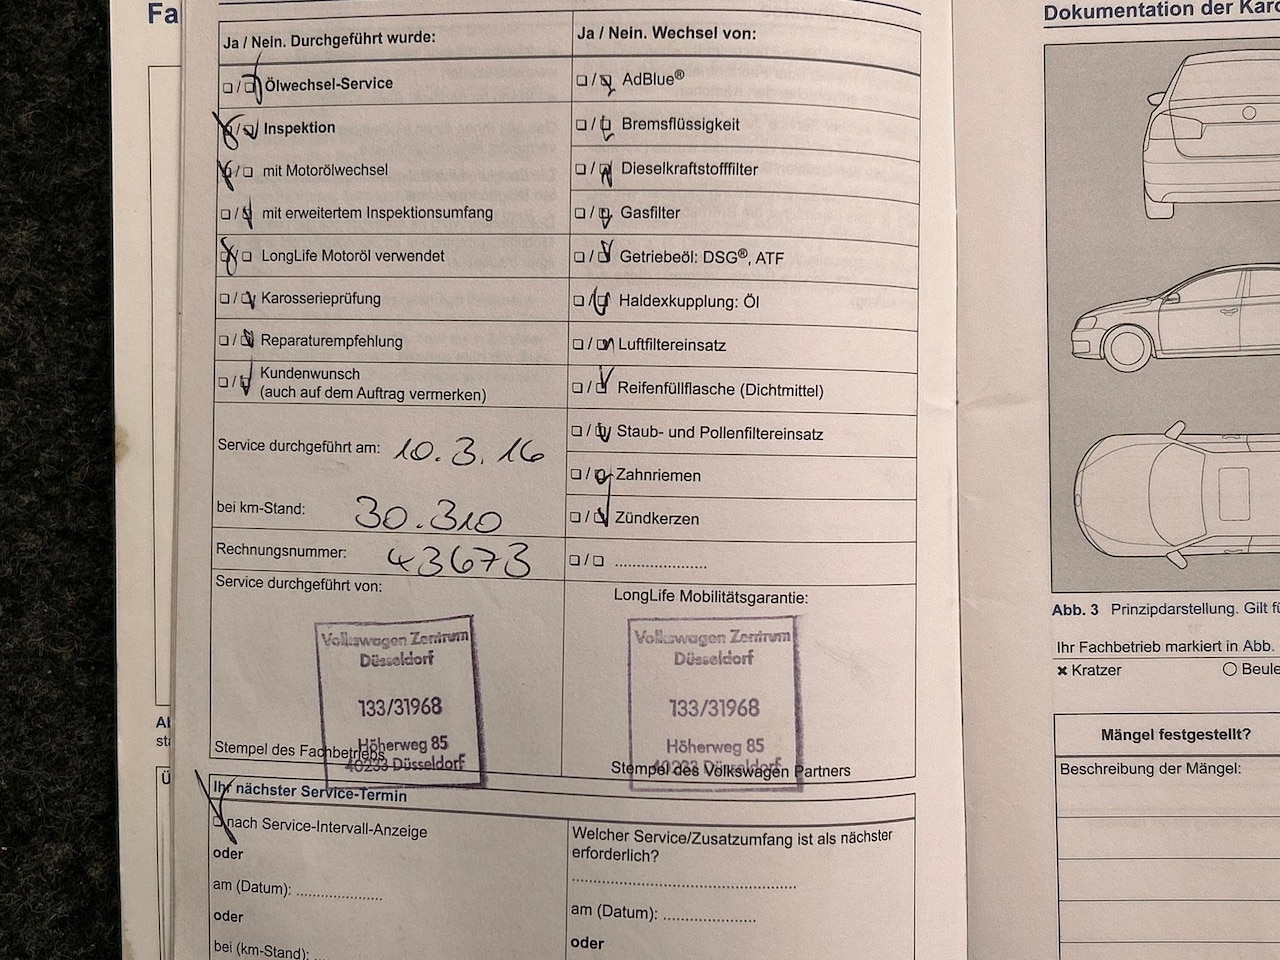 Fa
Ja / Nein. Durchgeführt wurde:
Ölwechsel-Service
Inspektion
mit Motorölwechsel
mit erweitertem Inspektionsumfang
LongLife Motoröl verwendet
Karosserieprüfung
Reparaturempfehlung
Kundenwunsch
(auch auf dem Auftrag vermerken)
Service durchgeführt am: 10.3.16
bei km-Stand: 30.310
Rechnungsnummer: 43673
Service durchgeführt von:
Volkswagen Zentrum
Düsseldorf
133/31968
Höherweg 85
40233 Düsseldorf
Stempel des Fachbetriebs
Ja / Nein. Wechsel von:
AdBlue®
Bremsflüssigkeit
Dieselkraftstofffilter
Gasfilter
Getriebeöl: DSG®, ATF
Haldexkupplung: Öl
Luftfiltereinsatz
Reifenfüllflasche (Dichtmittel)
Staub- und Pollenfiltereinsatz
Zahnriemen
Zündkerzen
LongLife Mobilitätsgarantie:
Volkswagen Zentrum
Düsseldorf
133/31968
Höherweg 85
40233 Düsseldorf
Stempel des Volkswagen Partners
Ihr nächster Service-Termin
nach Service-Intervall-Anzeige
oder
am (Datum): ....................
oder
bei (km-Stand): ..
Welcher Service/Zusatzumfang ist als nächster
erforderlich?
am (Datum): ....................
oder
Dokumentation der Karo
Abb. 3 Prinzipdarstellung. Gilt fü
Ihr Fachbetrieb markiert in Abb.
Kratzer
Beule
Mängel festgestellt?
Beschreibung der Mängel: